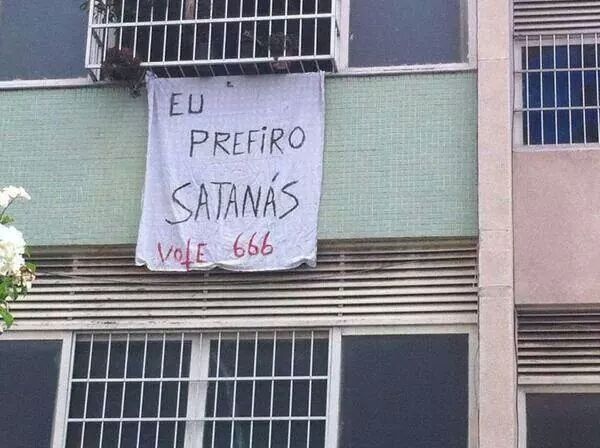 EU
PREFIRO
SATANÁS
VOTE 666